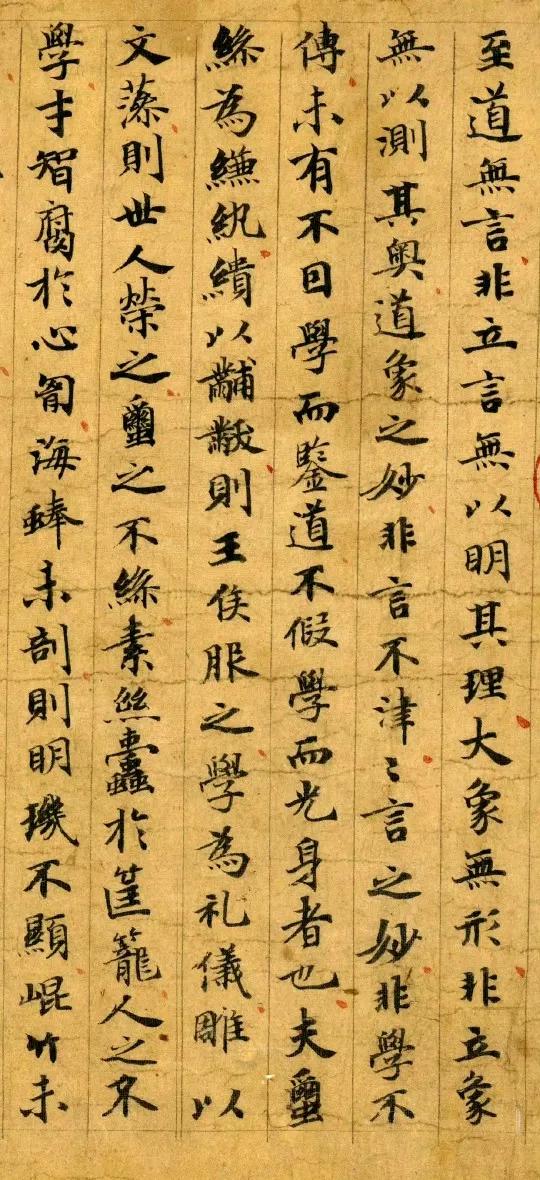 至道無言非立言無以明其理大象無形非立象
無以測其奥道象之妙非言不津〻言之妙非學不
傳未有不囙學而鋻道不假學而光身者也夫蠒
縿為縑紈繢以黼黻則王侯服之學為礼儀雕以
文藻則世人榮之蠒之不縿素絲蠹於筐籠人之不
學才智腐於心匈海蜯未剖則明璣不顯崐竹未